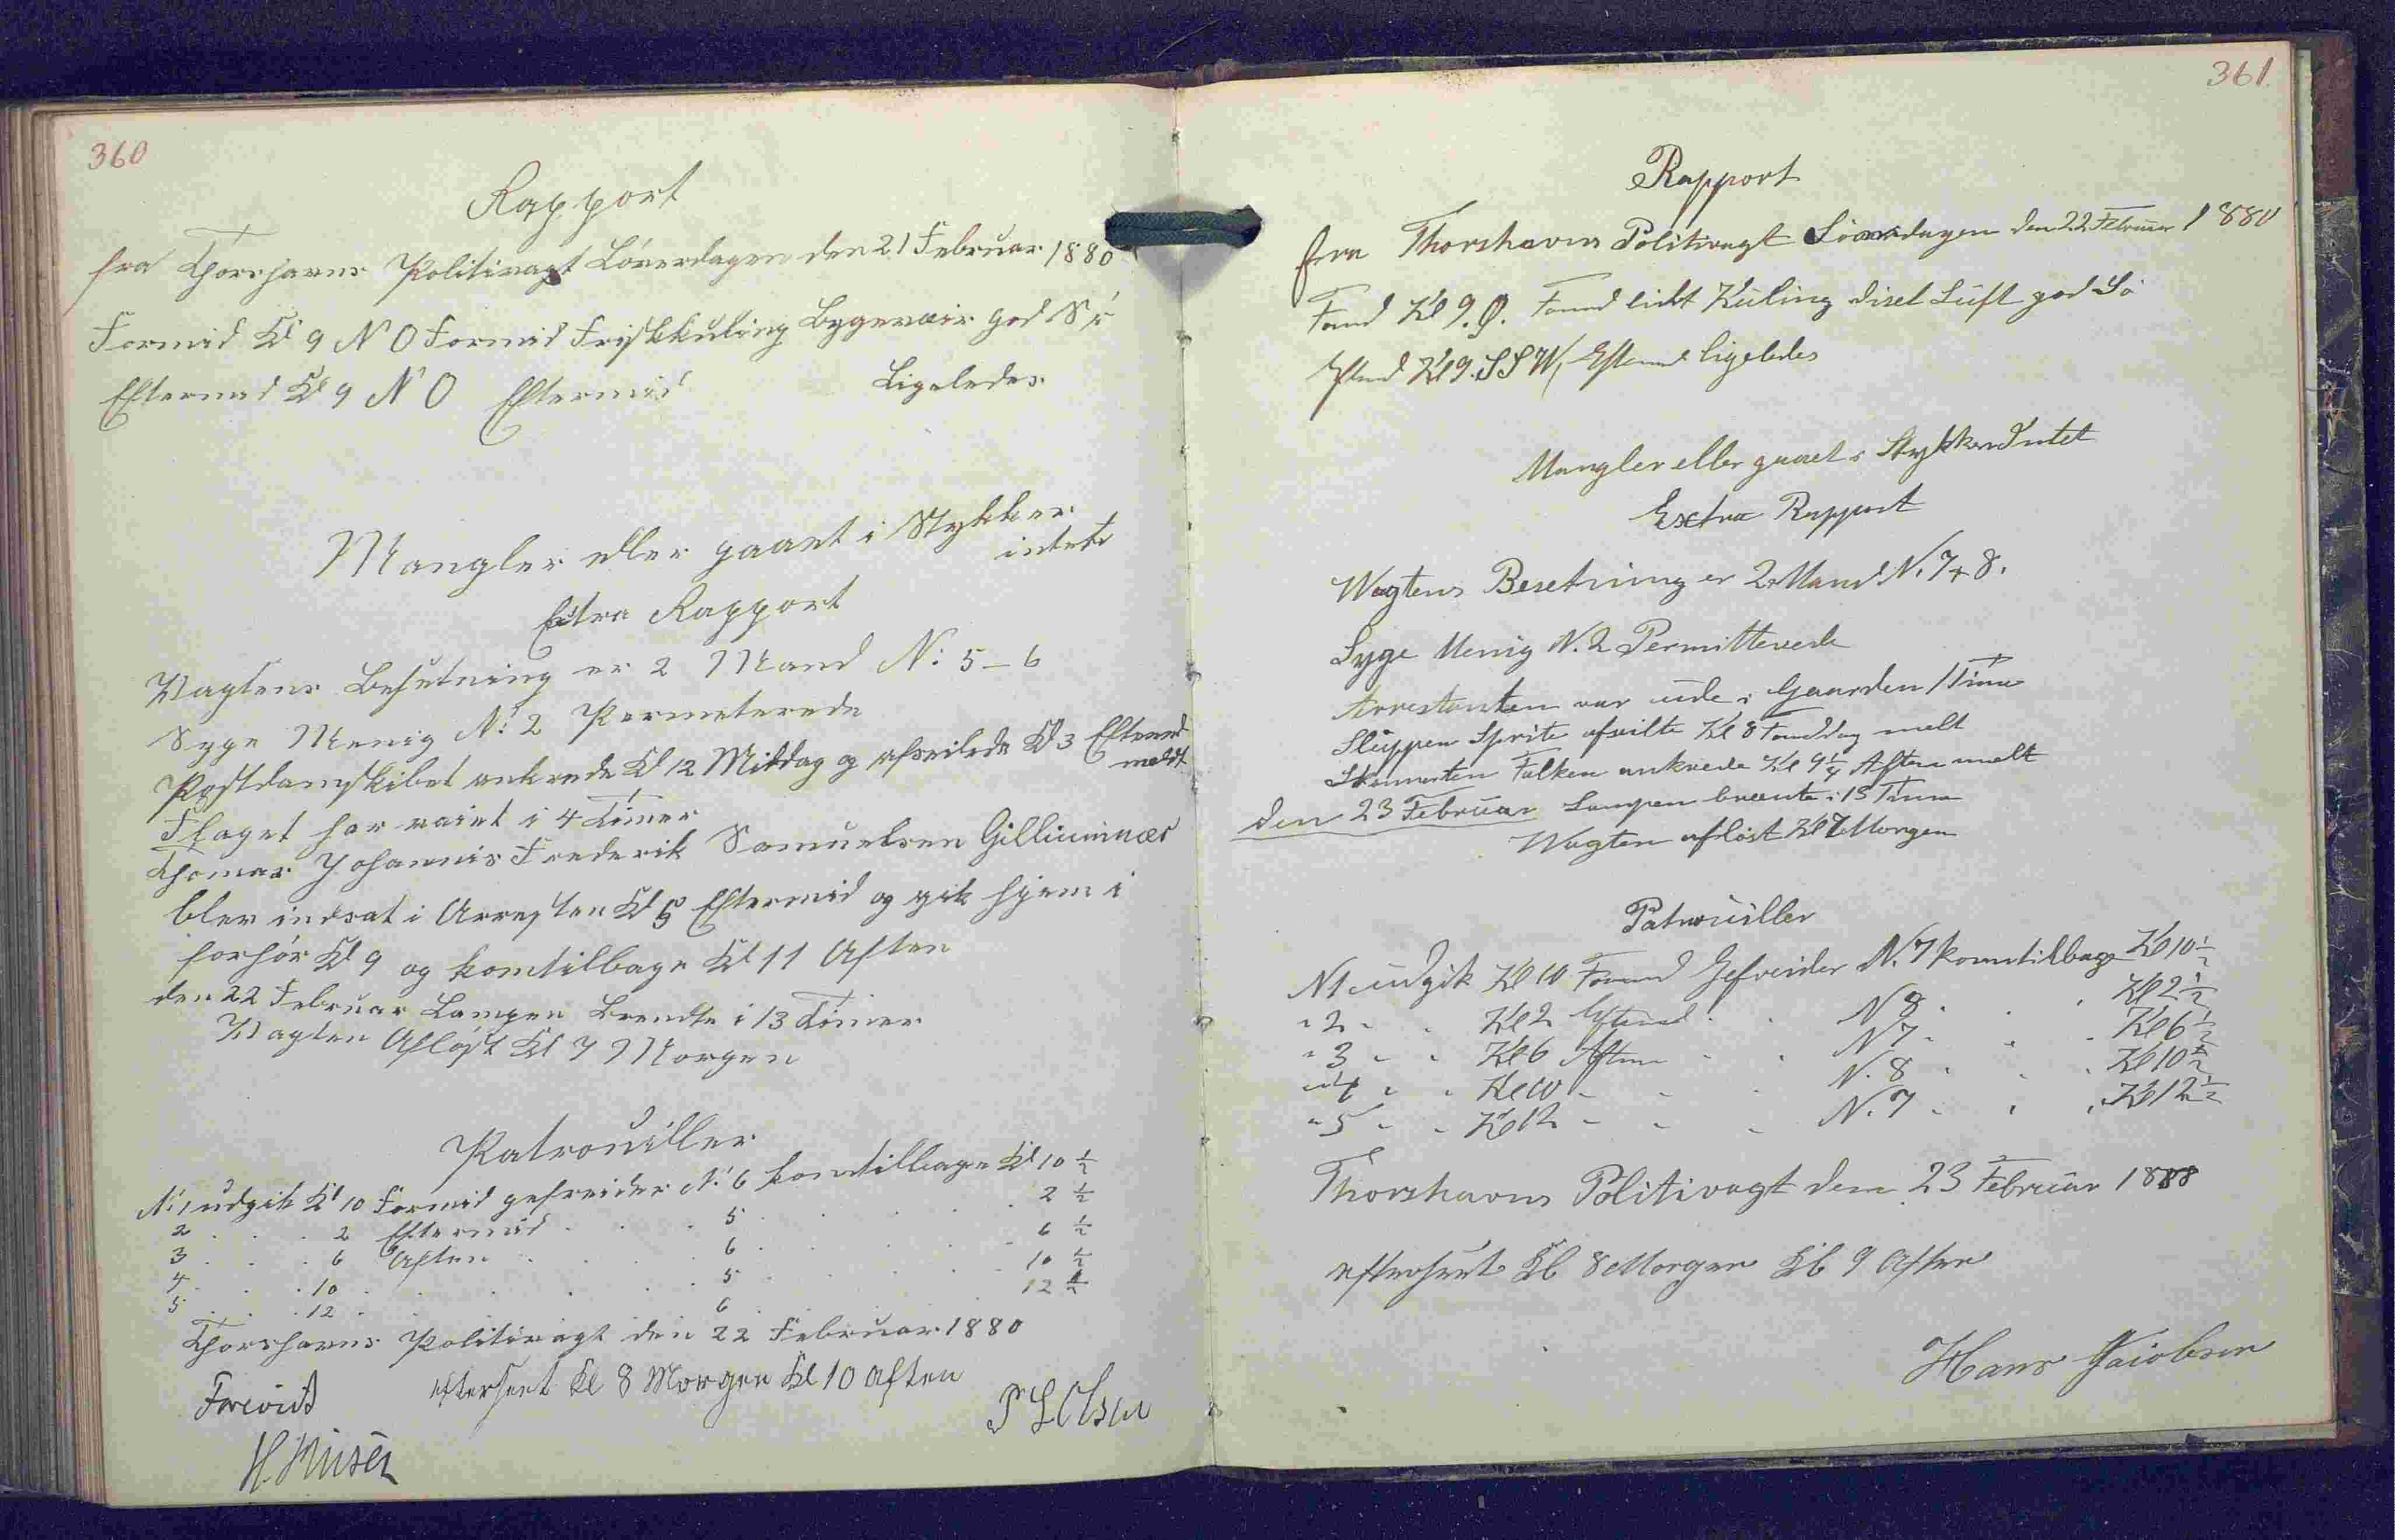 360
Rapport
fra Thorshavns Politivagt Löverdagen den 21 Februar 1880
Formid Kl 9 N O Formid Friskkuling Bygevair god Sö
Eftermd Kl 9 N O Eftermid Ligeledes
Mangler eller gaaet i Stykker
intet
Extra Rapport
Vagtens Besetning er 2 Mand N: 5 - 6
Syge Menig N: 2 Permeterede
Postdampskibet ankrede Kl 12 Middag og afseilede Kl 3 Eftermd
meldt
Flaget har vaiet i 4 Timer
Thomas Johannis Frederik Samuelsen
blev indsat i Arresten Kl 5 Eftermid og gik hjem i
forhör Kl 9 og komtilbage Kl 11 Aften
den 22 Februar Lampen Brendte i 13 Timer
Vagten Aflöst Kl 7 Morgen
Patrouiller
N: 1 udgik Kl 10 Formid gefreider N: 6 komtilbage Kl 10 ½
2 . . . 2 Eftermid . . . 5 . . . . 2 ½
3 . . . 6 Aften . . . 6 . . . . 6 ½
4 . . . 10 . . . . 5 . . . . 10 ½
5 . . . 12 . . . . 6 . . . . 12 ½
Thorshavns Politivagt den 22 Februar 1880
efterseet Kl 8 Morgen Kl 10 Aften
Forevist
P L Olsen
H.
361.
Rapport
fra Thorshavns Politivagt Söndagen den 22 Februar 1880
Formd Kl 9. Ø. Formd lidt Kuling diset Luft god Sö
Eftmd Kl 9. SSW, Eftermd ligeledes
Mangler eller gaaet i Stykker Intet
Extra Rapport
Wagtens Besetning er 2 Mand N. 7 + 8.
Syge Menig N. 2 Permitterede
Arrestanten var ude i Gaarden 1 Time
Sluppen Sprite afseilte Kl 8 Formddag melt
Skonnerten Falken ankrede Kl 9¼ Aften melt
den 23 Februar Lampen brænte i 13 Timer
Wagten aflöst Kl 7 Morgen
Patrouiller
N1 udgik Kl 10 Formd Gefreider N. 7 komtilbage Kl 10½
" 2 " " Kl 2 Eftermd " " N 8 " " " Kl 2½
" 3 " " Kl 6 Aften " " N 7 " " " Kl 6½
" 4 " " Kl 10 " " " N. 8 " " " Kl 10½
" 5 " " Kl 12 " " " N. 7 " " " Kl 12½
Thorshavns Politivagt den 23 Februar 1888
efterseet Kl 8 Morgen Kl 9 Aften
Hans Jaiobsen